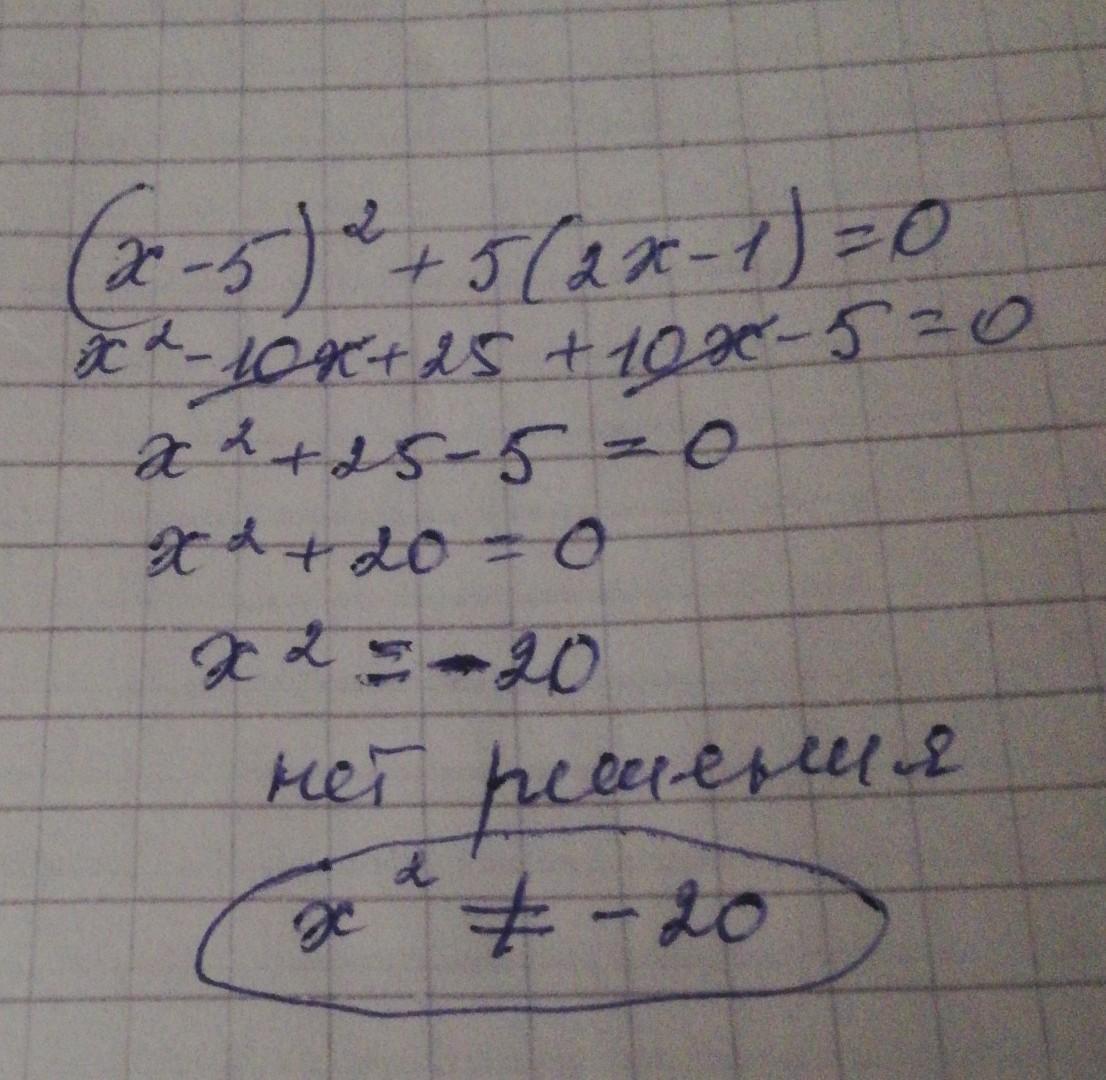 (x-5)² + 5(2x-1) = 0
x² - 10x + 25 + 10x - 5 = 0
x² + 25 - 5 = 0
x² + 20 = 0
x² = -20
нет решения
x² ≠ -20